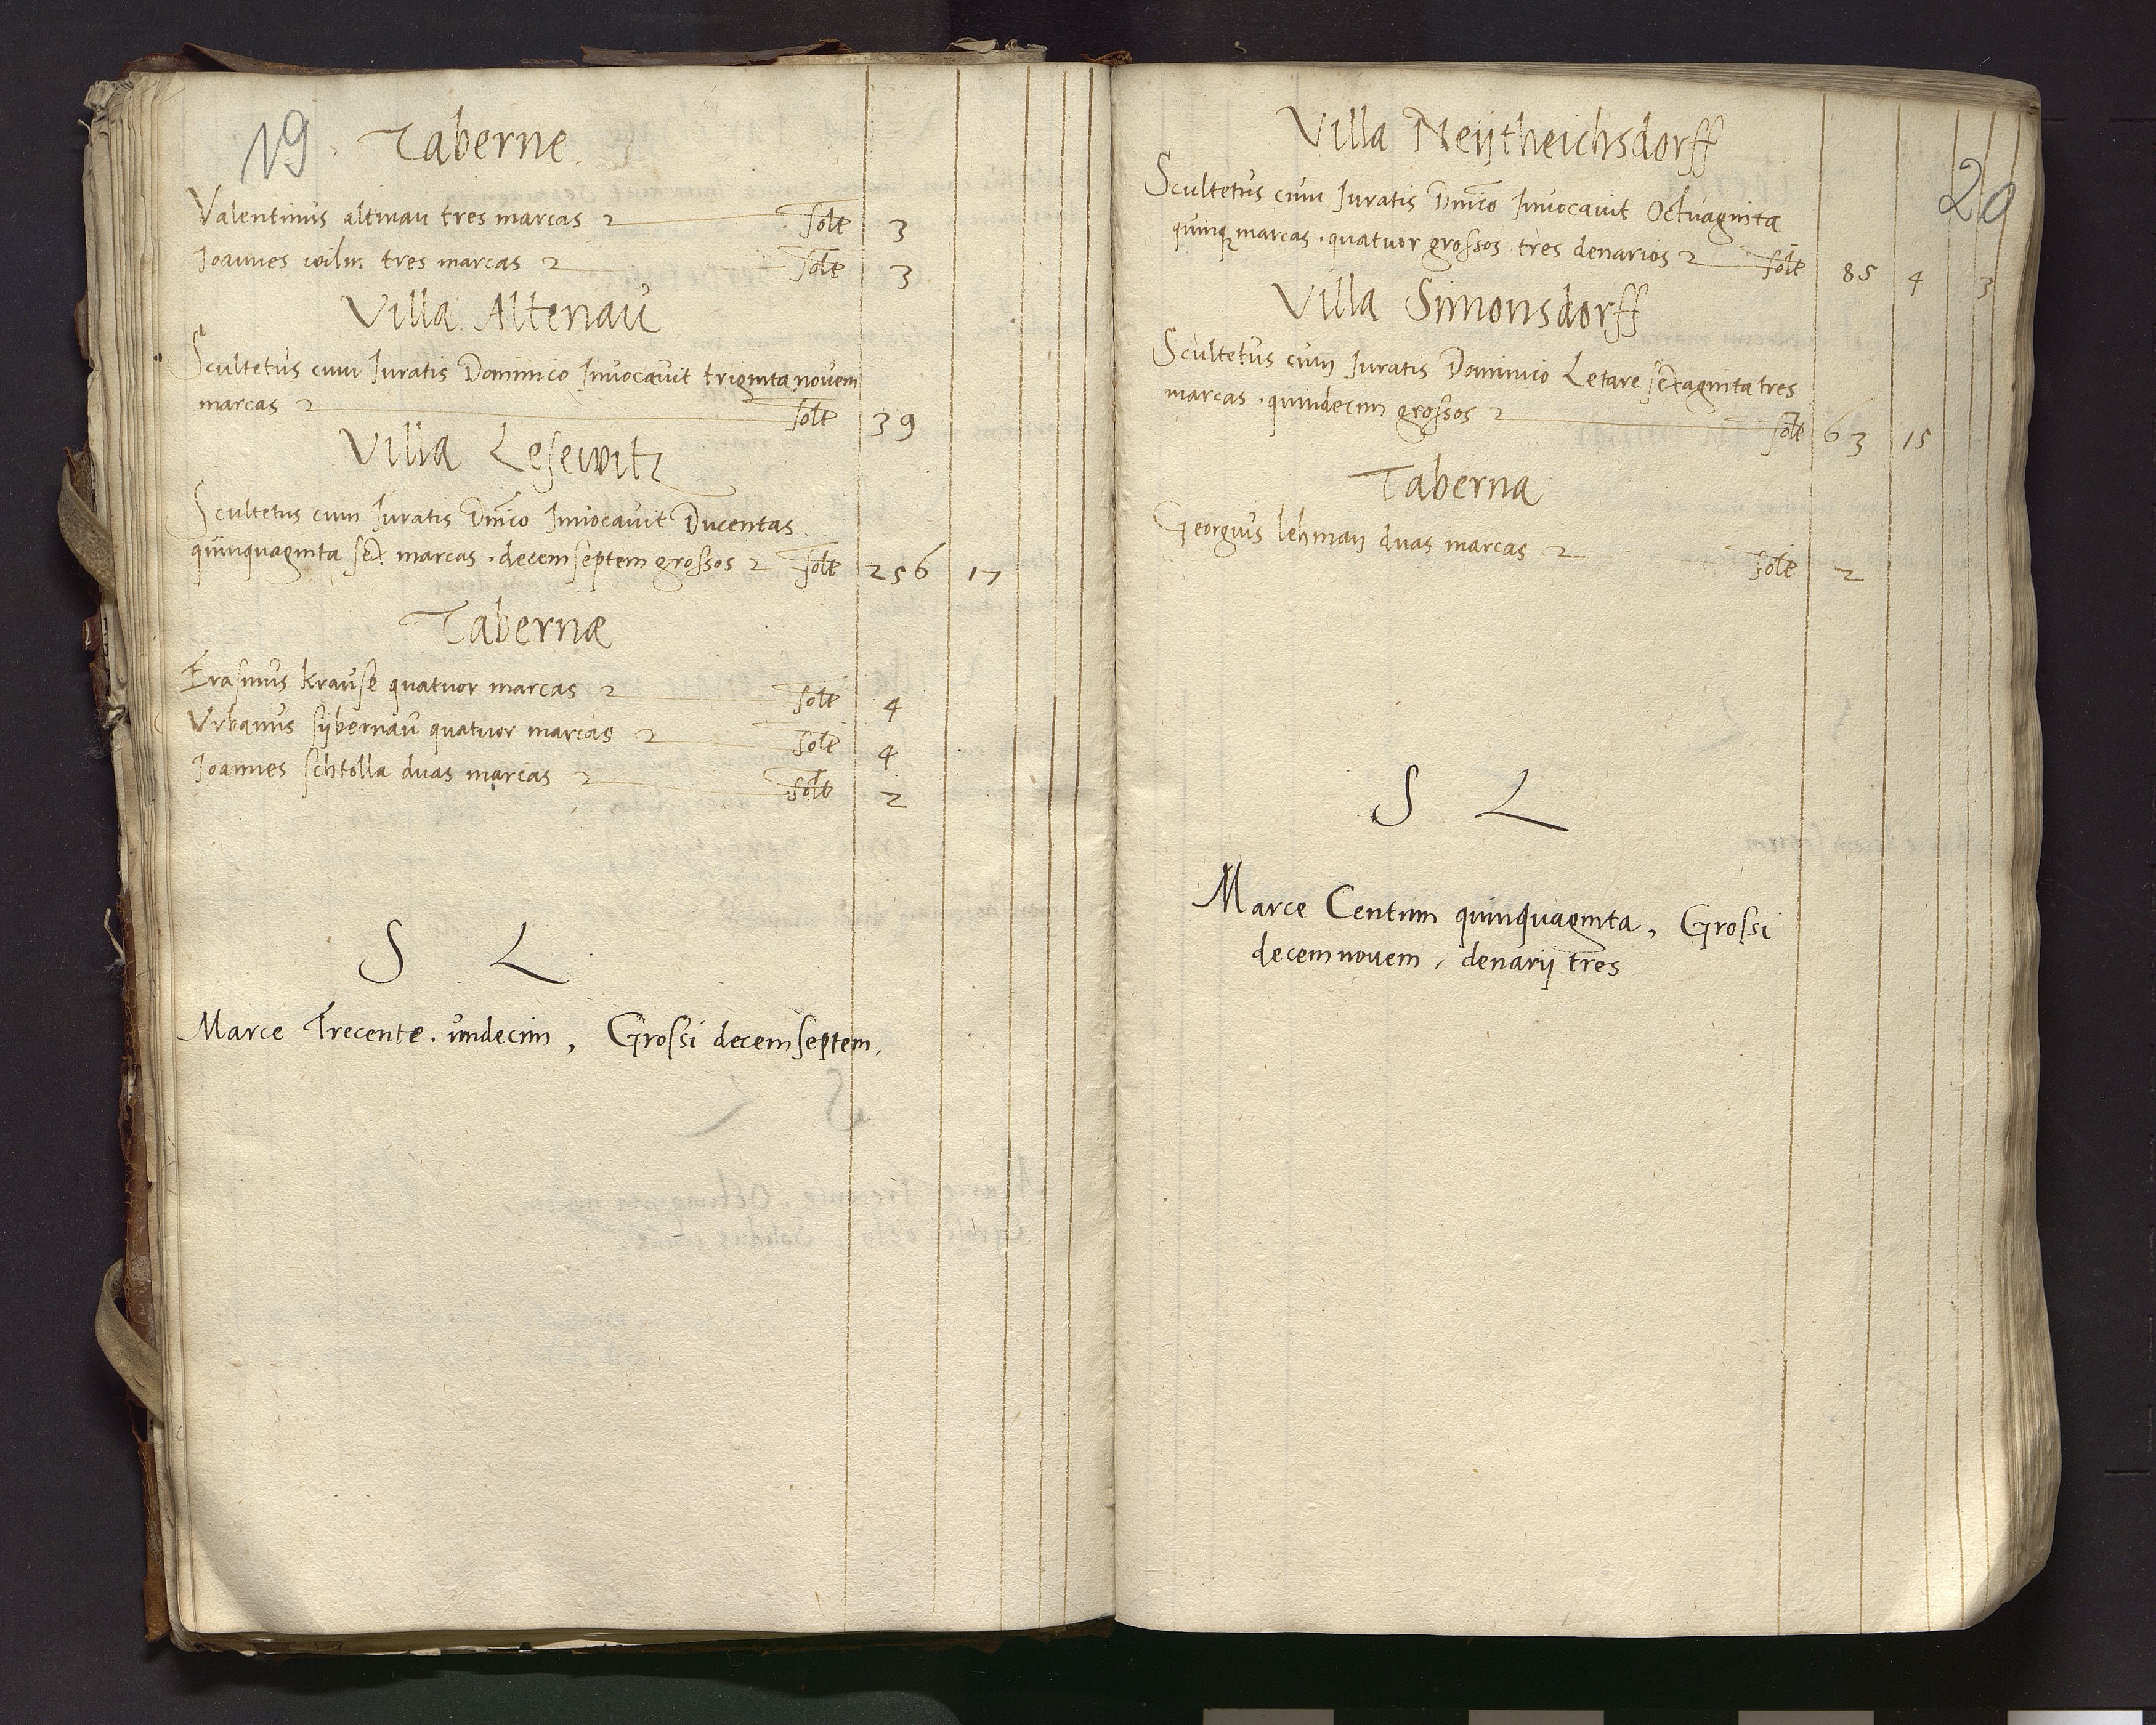 19
Taberne
Valentinus altmau tres marcas solt 3
Joannes wilm tres marcas solt 3
Villa Altenau
Scultetus cum Juratis Dominico Invocavit triginta novem
marcas solt 39
Villa Lesewitz
Scultetus cum Juratis Dnico Invocavit Ducentas
quinquaginta sex marcas . decem septem grossos solt 256 17
Tabernæ
Erasmus krause quatuor marcas solt 4
Vrbanus sybernau quatuor marcas solt 4
Joannes schtolla duas marcas solt 2
S L
Marce Trecente . undecim , Grossi decemseptem .
20
Villa Neytheichsdorff
Scultetus cum Juratis Dnico Invocavit Octuaginta
quinq marcas . quatuor grossos tres denarios solt 85 4 3
Villa Simonsdorff
Scultetus cum Juratis Dominico Letare sexaginta tres
marcas . quindecim grossos solt 63 15
Taberna
Georgius lehman duas marcas solt 2
S L
Marce Centum quinquaginta , Grossi
decemnovem , denarij tres